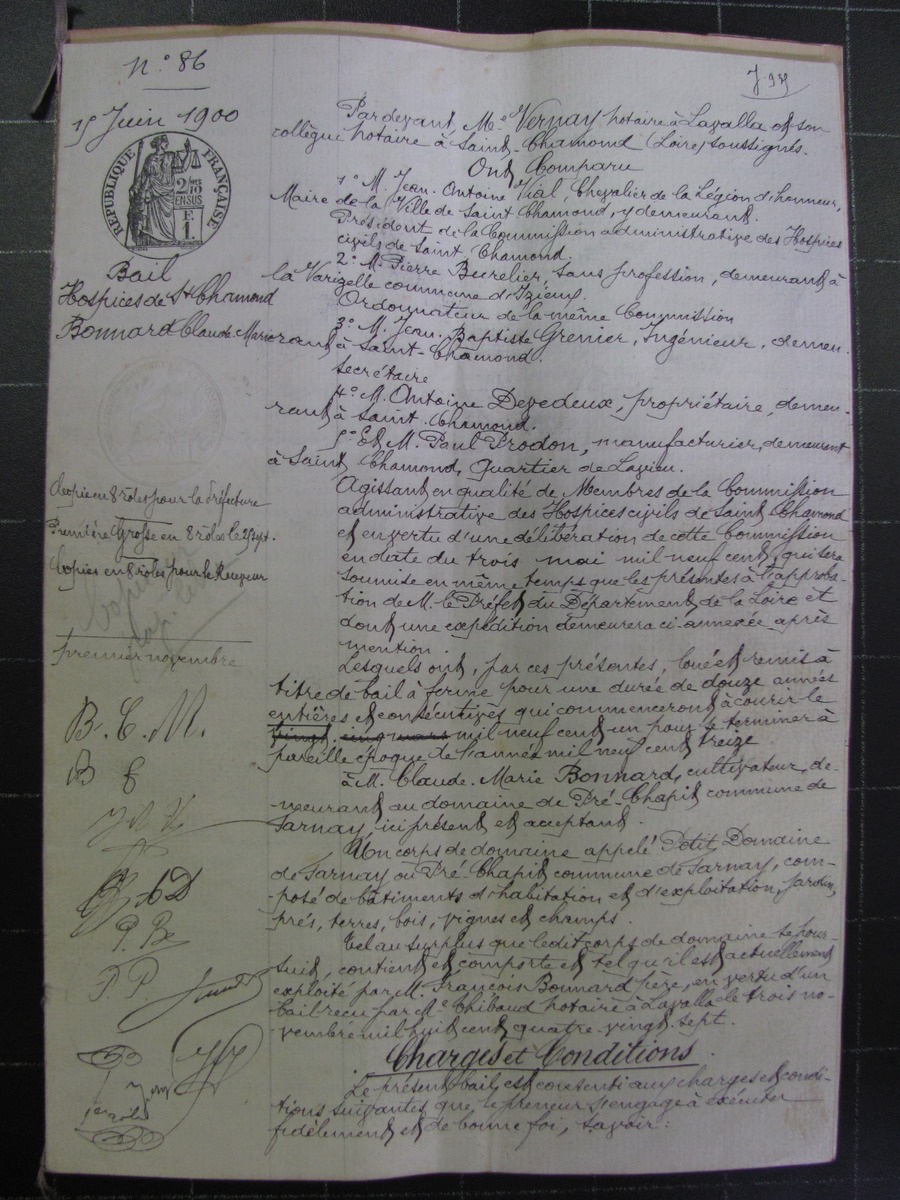 N.° 86
15 Juin 1900
RÉPUBLIQUE FRANÇAISE
2/10 EN SUS
F.
1.
Bail
Hospices de St Chamond
Bonnard Claude-Marie
Copie en 8 rôles pour la Préfecture
Première Grosse en 8 rôles le 25 sept.
Copies en 8 rôles pour le Preneur
premier novembre
B. C. M.
P. P.
Pardevant Me Vernay notaire à Lavalla et son
collègue notaire à Saint-Chamond (Loire) soussignés.
Ont Comparu
1° M. Jean-Antoine Vial, Chevalier de la Légion d'honneur,
Maire de la Ville de Saint Chamond, y demeurant.
Président de la Commission administrative des Hospices
civils de Saint Chamond.
2° M. Pierre Burelier, sans profession, demeurant à
la Varizelle commune d'Izieux.
Ordonnateur de la même Commission
3° M. Jean-Baptiste Grenier, Ingénieur, demeu-
rant à Saint-Chamond.
Secrétaire
4° M. Antoine Devedeux, propriétaire, demeu-
rant à Saint Chamond.
5° Et M. Paul Prodon, manufacturier, demeurant
à Saint Chamond, Quartier de Lavieu.
Agissant en qualité de Membres de la Commission
administrative des Hospices civils de Saint Chamond
et en vertu d'une délibération de cette Commission
en date du trois mai mil neuf cent, qui sera
soumise en même temps que les présentes à l'approba-
tion de M. le Préfet du Département de la Loire et
dont une expédition demeurera ci-annexée après
mention.
Lesquels ont, par ces présentes, loué et remis à
titre de bail à ferme pour une durée de douze années
entières et consécutives qui commenceront à courir le
vingt-cinq mars mil neuf cent un pour se terminer à
pareille époque de l'année mil neuf cent treize
à M. Claude-Marie Bonnard, cultivateur, de-
meurant au domaine de Pré-Chapit commune de
Tarnay, ici présent et acceptant.
Un corps de domaine appelé Petit Domaine
de Tarnay ou Pré-Chapit commune de Tarnay, com-
posé de bâtiments d'habitation et d'exploitation, jardin,
prés, terres, bois, vignes et champs.
Tel au surplus que ledit corps de domaine se pour-
suit, contient et comporte et tel qu'il est actuellement
exploité par M. François Bonnard père, en vertu d'un
bail reçu par Me Thibaud notaire à Lavalla le trois no-
vembre mil huit cent quatre-vingt-sept.
Charges et Conditions
Le présent bail est consenti aux charges et condi-
tions suivantes que le preneur s'engage à exécuter
fidèlement et de bonne foi, savoir: